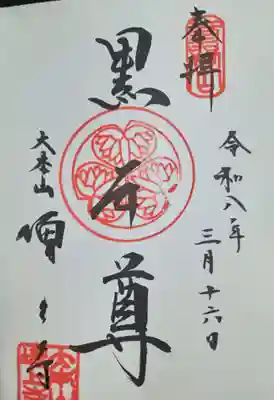 奉拝
令和八年三月十六日
黒本尊
大本山増上寺